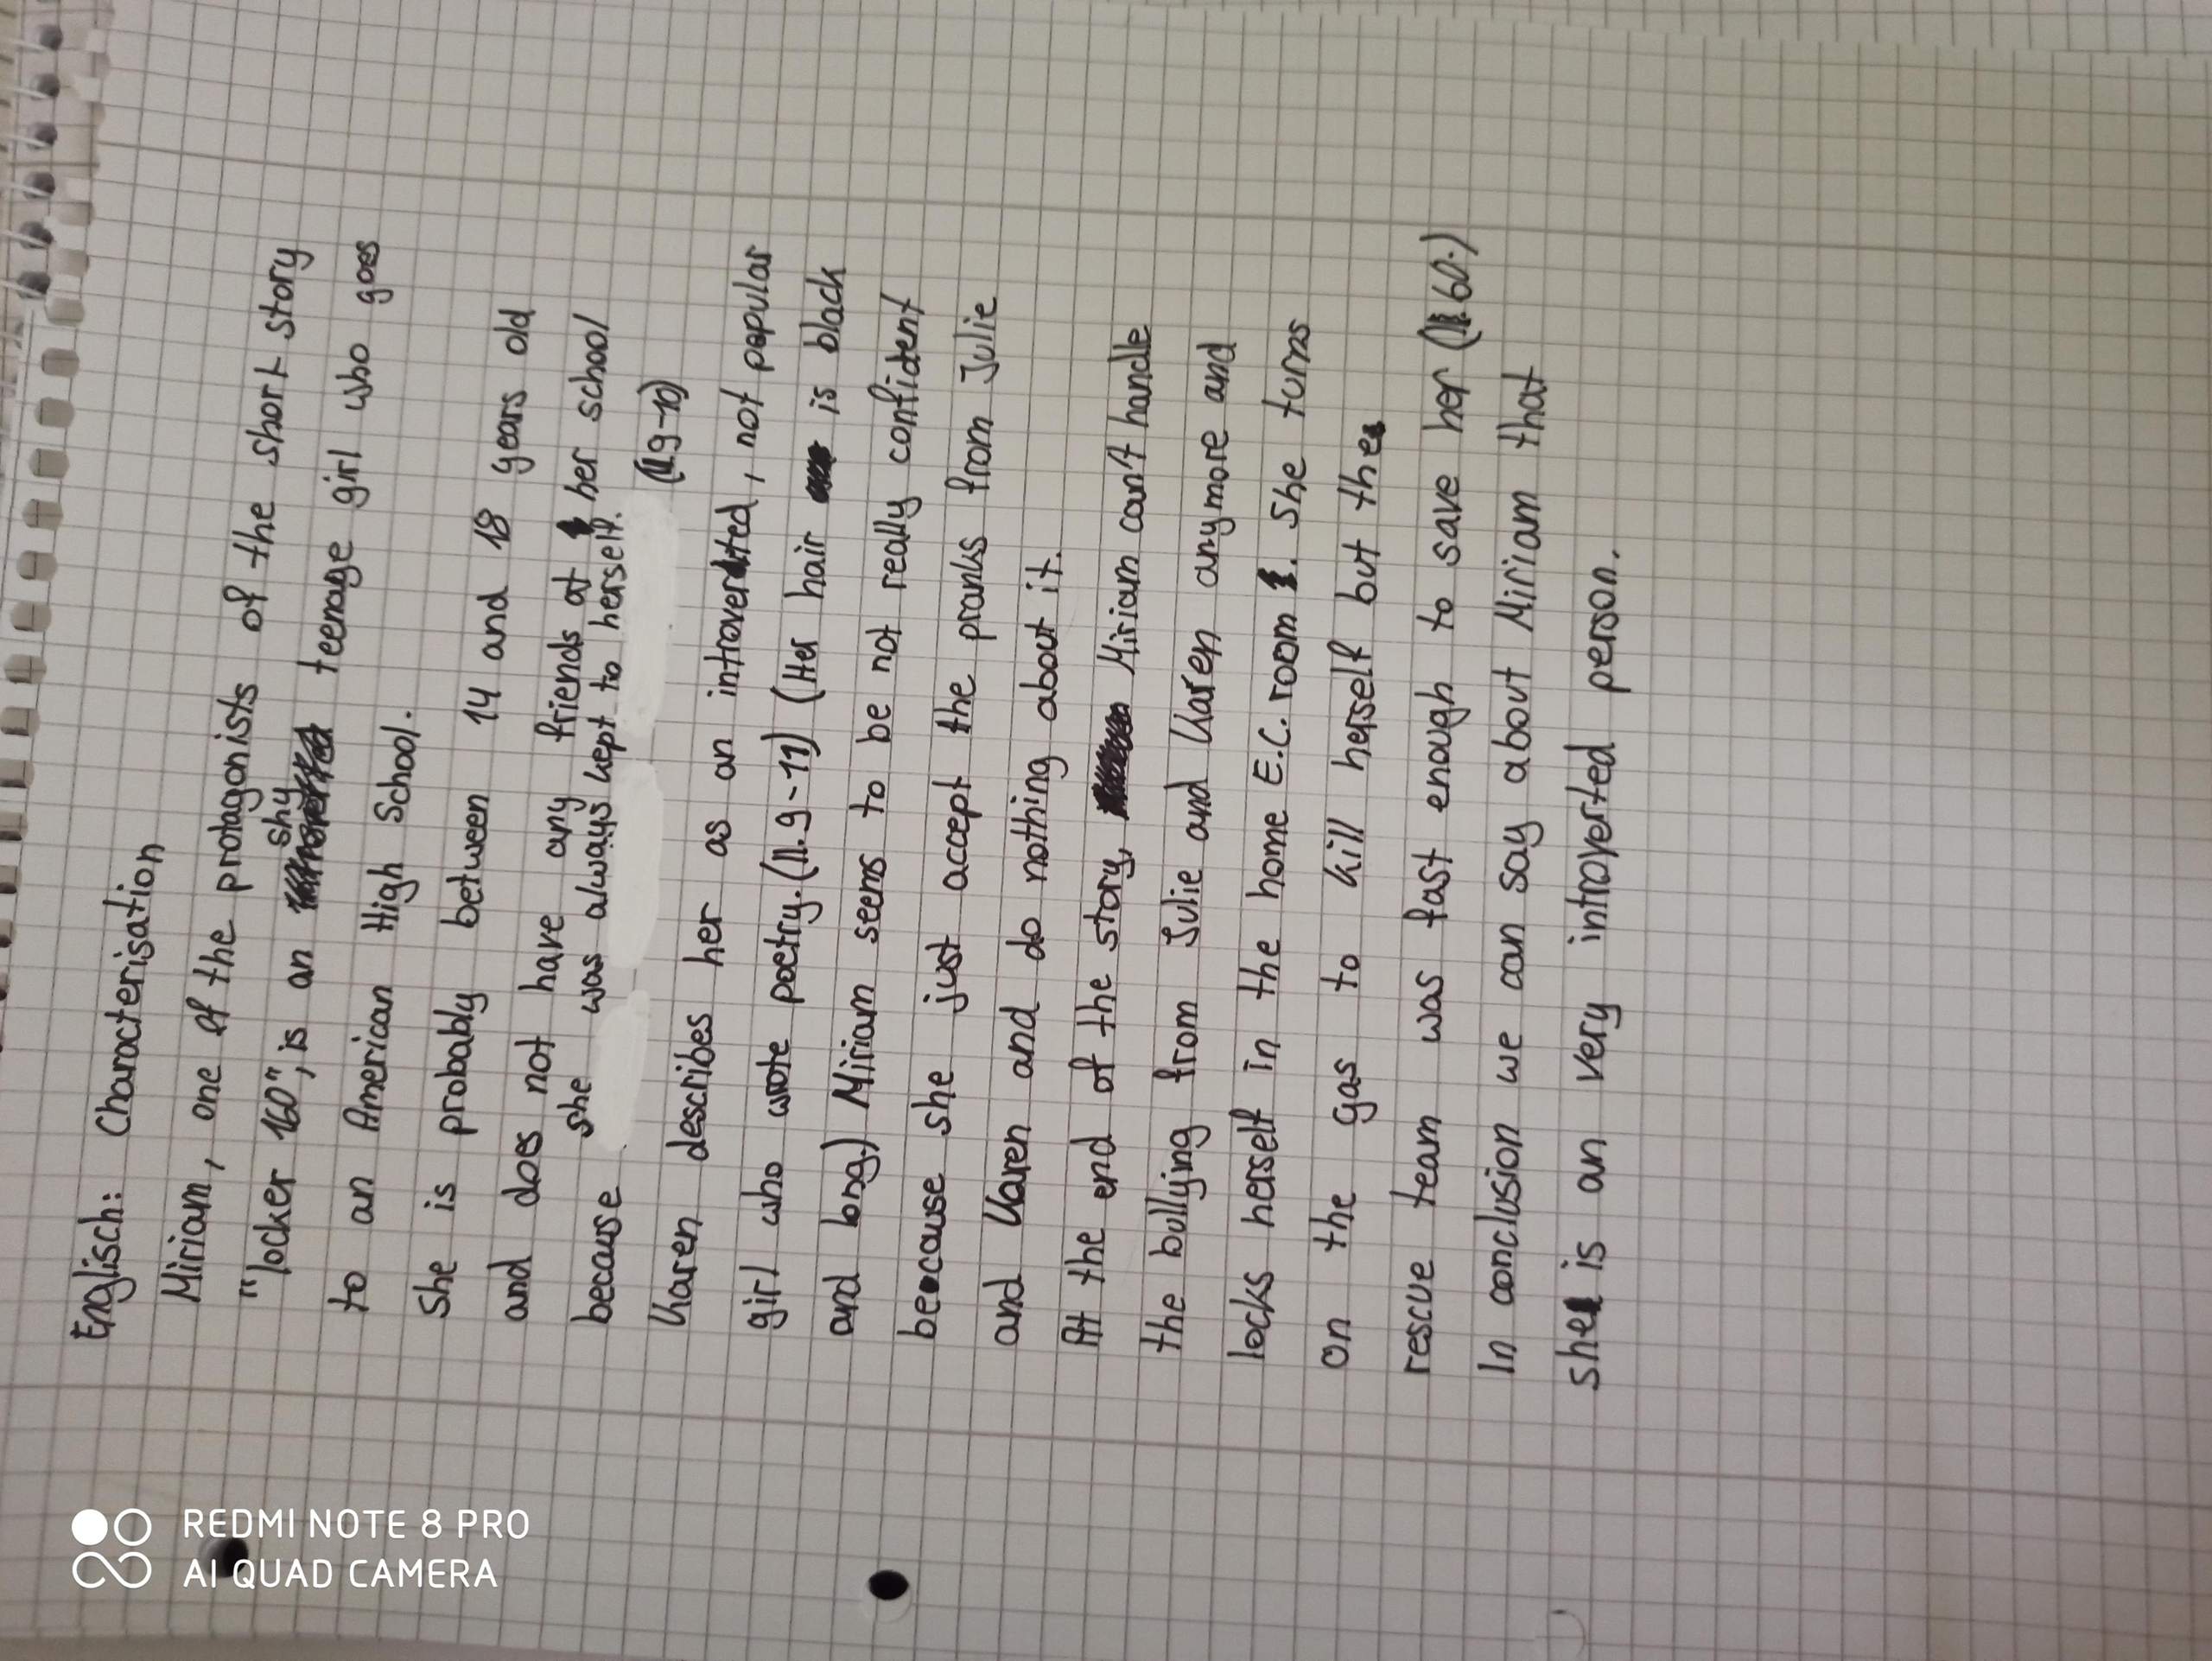 Englisch: Characterisation
Miriam, one of the protagonists of the short story
"locker 160", is an shy teenage girl who goes
to an American High School.
She is probably between 14 and 18 years old
and does not have any friends at her school
because she was always kept to herself. (ll.9-10)
Karen describes her as an introverted, not popular
girl who wrote poetry. (ll.9-11) (Her hair is black
and long) Miriam seems to be not really confident
because she just accept the pranks from Julie
and Karen and do nothing about it.
At the end of the story, Miriam can't handle
the bullying from Julie and Karen anymore and
locks herself in the home E.C. room. She turns
on the gas to kill herself but the
rescue team was fast enough to save her (l.60.)
In conclusion we can say about Miriam that
she is an very introverted person.
REDMI NOTE 8 PRO
AI QUAD CAMERA